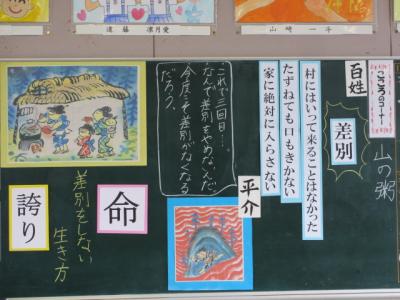 遠藤 凛月愛
山崎 一斗
山の粥
百姓
差別
村にはいって来ることはなかった
たずねても口もきかない
家に絶対に入らさない
平介
これで三回目…
なんで差別をやめないんだ
今度こそ差別がなくなる
だろう。
命
差別をしない
生き方
誇り